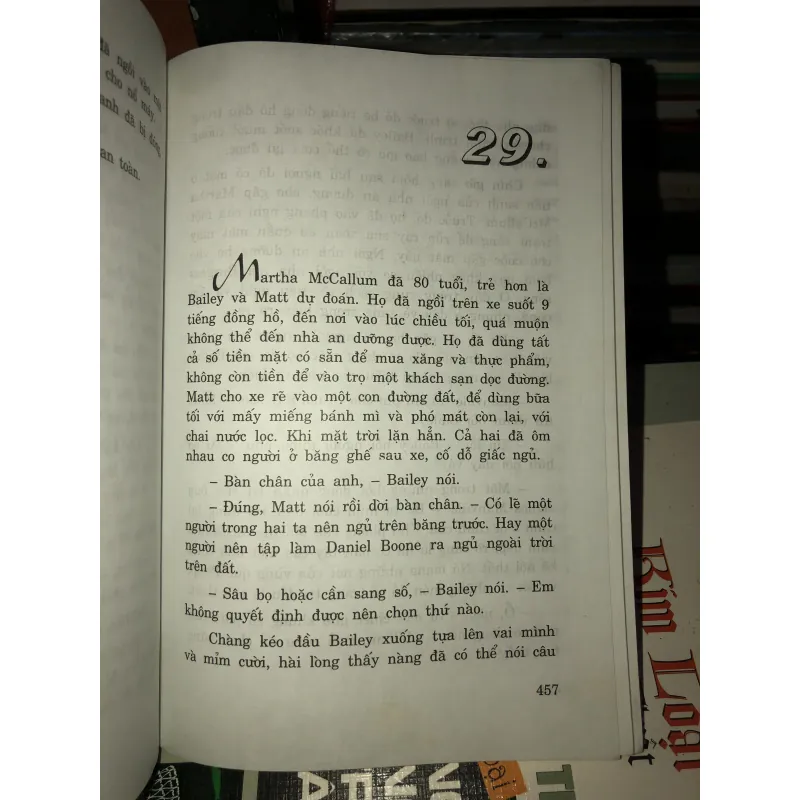 đã ngồi vào
cho nổ máy.
anh đã bị đóng
an toàn.
29.
Martha McCallum đã 80 tuổi, trẻ hơn là
Bailey và Matt dự đoán. Họ đã ngồi trên xe suốt 9
tiếng đồng hồ, đến nơi vào lúc chiều tối, quá muộn
không thể đến nhà an dưỡng được. Họ đã dùng tất
cả số tiền mặt có sẵn để mua xăng và thực phẩm,
không còn tiền để vào trọ một khách sạn dọc đường.
Matt cho xe rẽ vào một con đường đất, để dùng bữa
tối với mấy miếng bánh mì và phó mát còn lại, với
chai nước lọc. Khi mặt trời lặn hẳn. Cả hai đã ôm
nhau co người ở băng ghế sau xe, cố dỗ giấc ngủ.
– Bàn chân của anh, – Bailey nói.
– Đúng, Matt nói rồi dời bàn chân. – Có lẽ một
người trong hai ta nên ngủ trên băng trước. Hay một
người nên tập làm Daniel Boone ra ngủ ngoài trời
trên đất.
– Sâu bọ hoặc cần sang số, – Bailey nói. – Em
không quyết định được nên chọn thứ nào.
Chàng kéo đầu Bailey xuống tựa lên vai mình
và mỉm cười, hài lòng thấy nàng đã có thể nói câu
457
Kim Loại